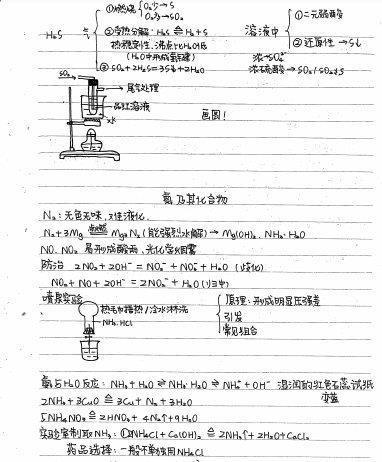 H₂S
气
①燃烧 O₂少→S
O₂多→SO₂
②受热分解：H₂S ≙ H₂+S
热稳定性、沸点比H₂O低
(H₂O中形成氢键)
③SO₂+2H₂S=3S↓+2H₂O
溶液中
①二元弱酸
②还原性→S↓
浓→SO₂
浓硫酸→SO₂/SO₂+S
SO₂
尾气处理
品红溶液
水
画图！
氮及其化合物
N₂：无色无味，难液化.
N₂+3Mg 点燃 Mg₃N₂(能强烈水解)→Mg(OH)₂、NH₃·H₂O
NO、NO₂ 易形成酸雨、光化学烟雾
防治 2NO₂+2OH⁻=NO₃⁻+NO₂⁻+H₂O (歧化)
NO₂+NO+2OH⁻=2NO₂⁻+H₂O (归中)
喷泉实验
热毛巾捂热/冷水淋洗
NH₃、HCl
原理：形成明显压强差
引发
常见组合
氨与H₂O反应：NH₃+H₂O⇌NH₃·H₂O⇌NH₄⁺+OH⁻ 湿润的红色石蕊试纸
变蓝
2NH₃+3CuO ≙ 3Cu+N₂+3H₂O
5NH₄NO₃ ≙ 2HNO₃+4N₂↑+9H₂O
实验室制取NH₃：①2NH₄Cl+Ca(OH)₂ ≙ 2NH₃↑+2H₂O+CaCl₂
药品选择：一般不单独用NH₄Cl